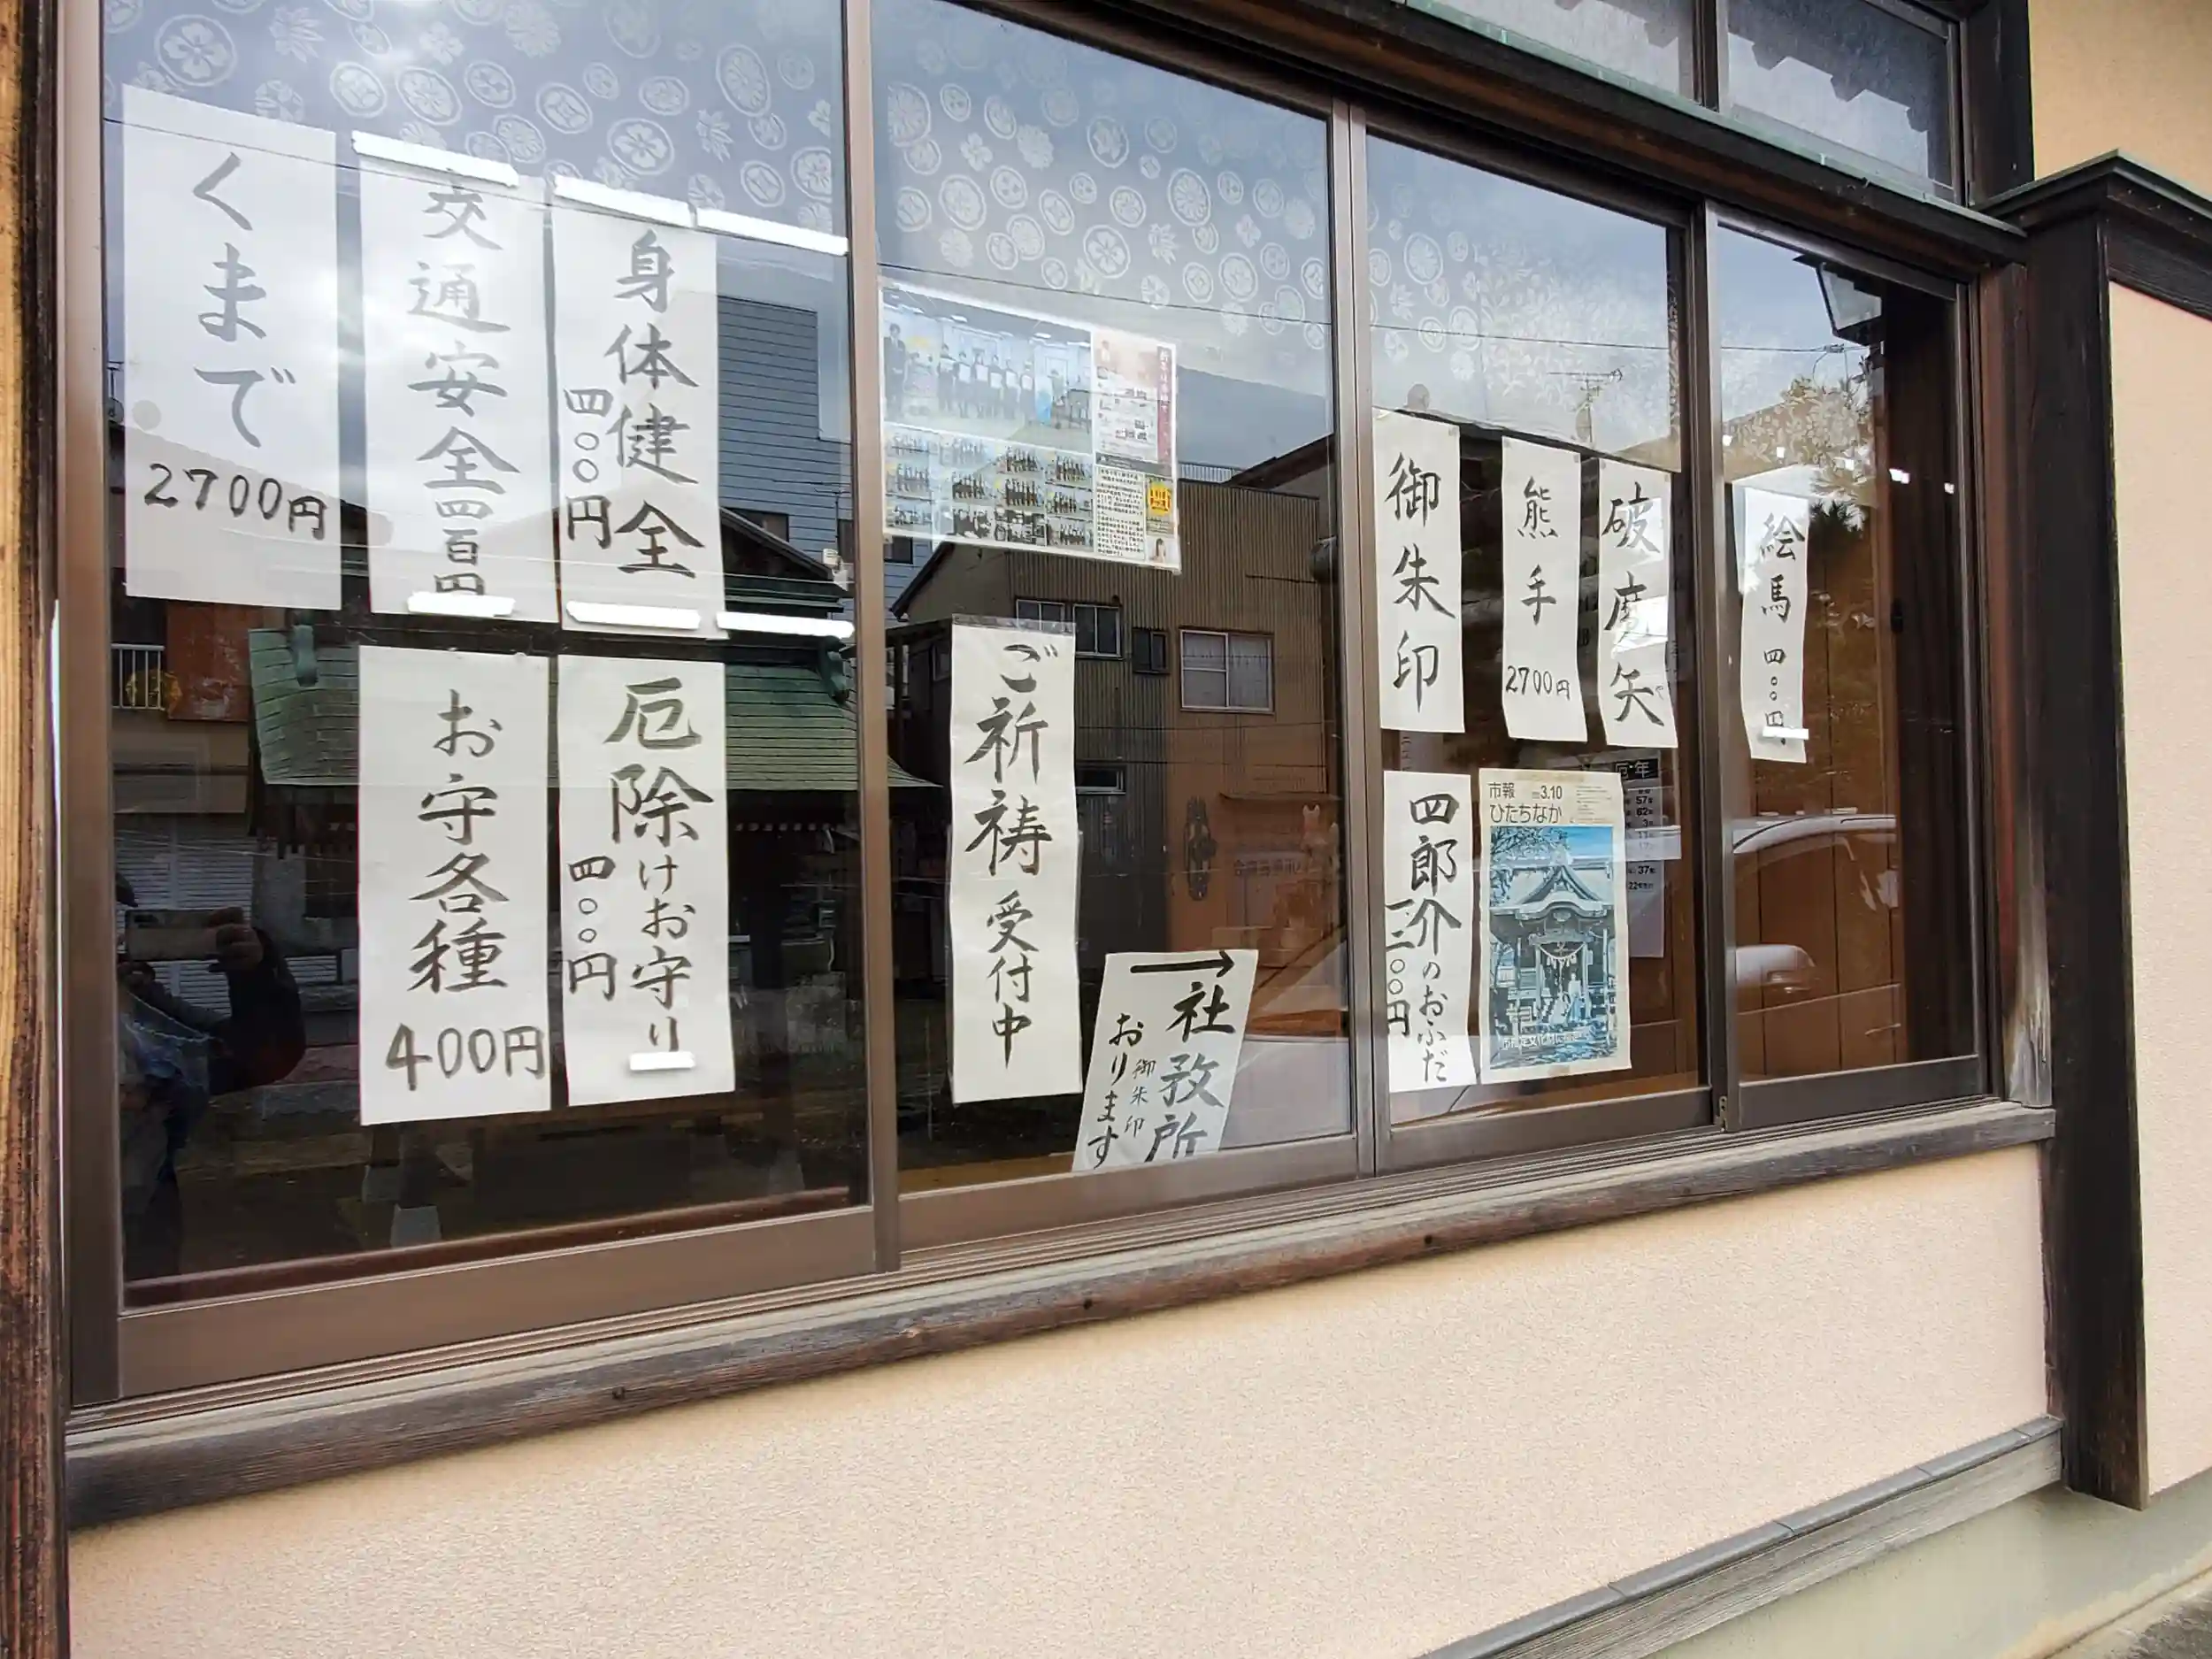 くまで
2700円
交通安全
四百円
身体健全
四〇〇円
お守各種
400円
厄除けお守り
四〇〇円
ご祈祷受付中
→
社務所
御朱印
おります
御朱印
熊手
2700円
破魔矢
絵馬
四〇〇円
四郎介のおふだ
三〇〇円
市報
3.10
ひたちなか
厄年